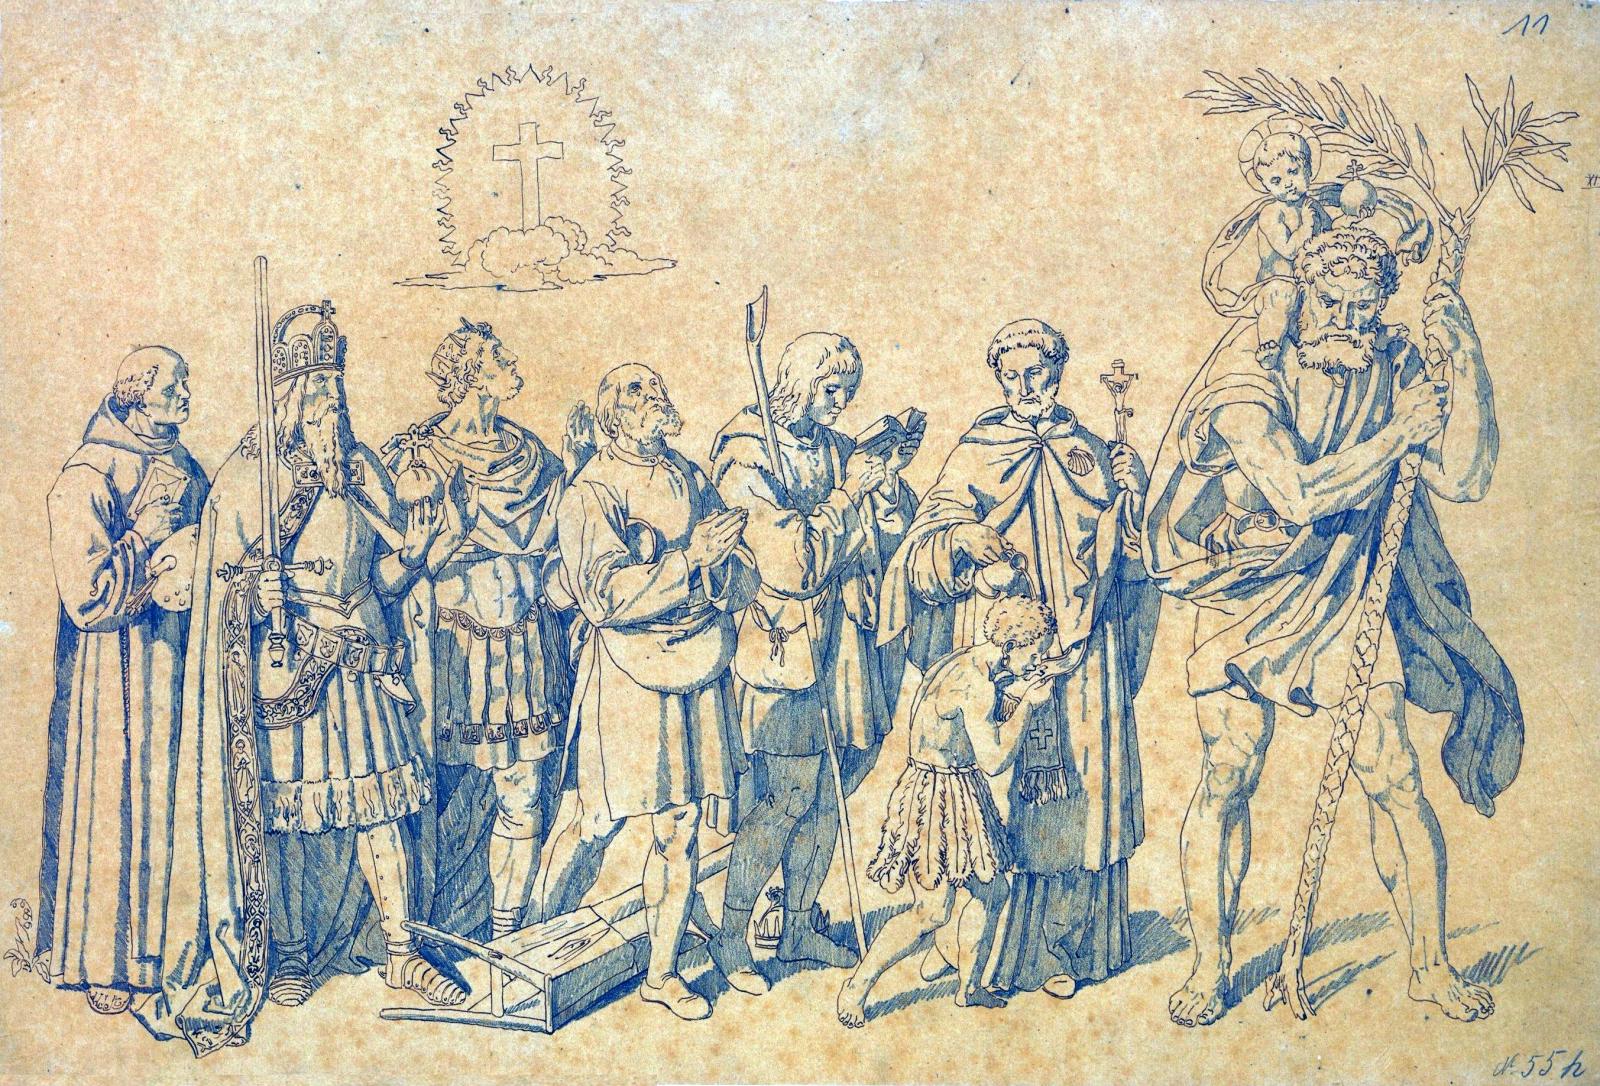 11
XI
№ 55 h